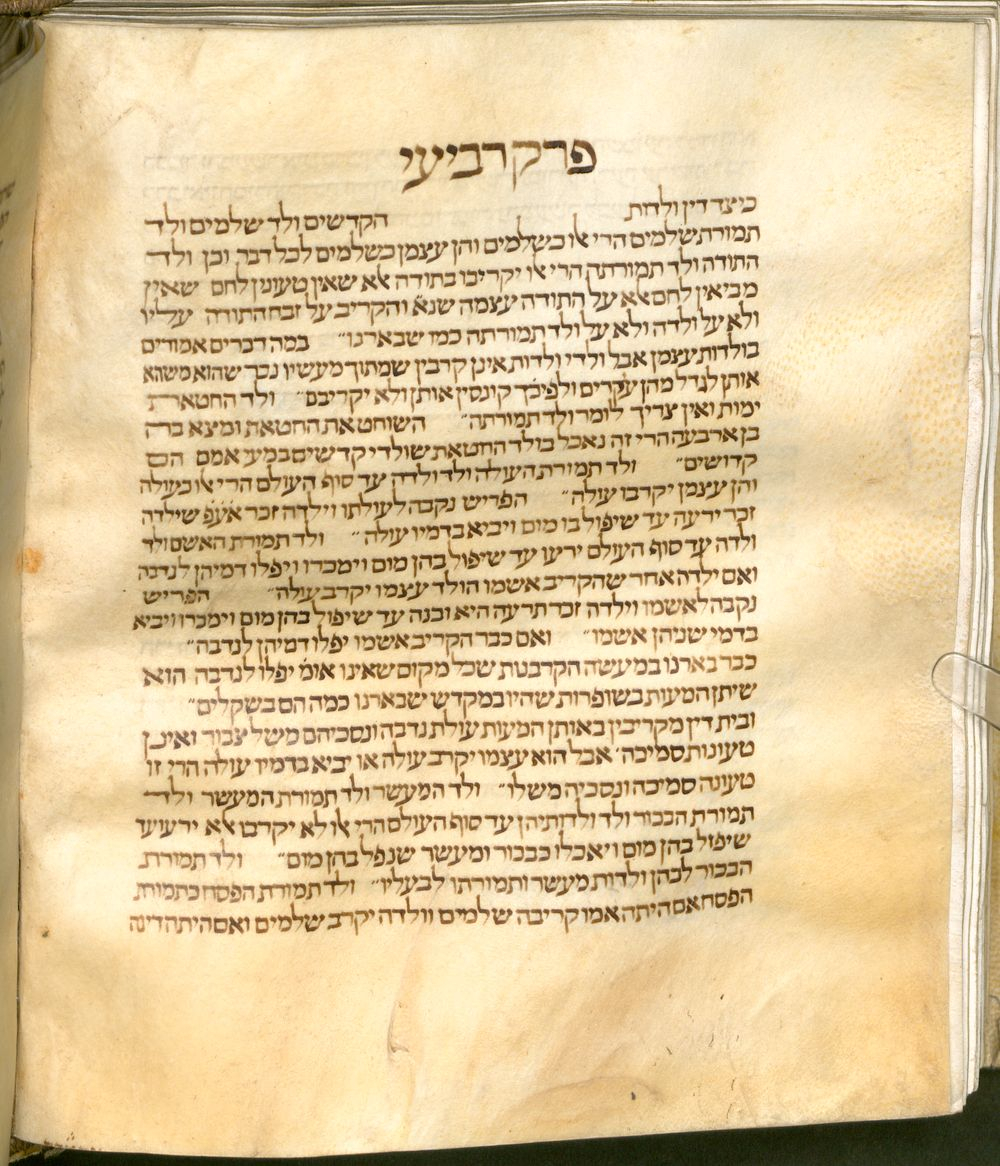 פרק רביעי
כיצד דין ולדות הקדשים ולד שלמים ולד
תמורת שלמים הרי אלו כשלמים והן עצמן כשלמים לכל דבר וכן ולד
התודה ולד תמורתה הרי אלו יקריבו כתודה אלא שאין טעונין לחם שאין
מביאין לחם אלא על התודה עצמה שנא והקריב על זבח התודה עליו
ולא על ולדה ולא על ולד תמורתה כמו שבארנו״ במה דברים אמורים
בולדות עצמן אבל ולדי ולדות אינן קרבין שמתוך מעשיו נכר שהוא משהא
אותן לגדל מהן עדרים ולפיכך קונסין אותן ולא יקריבם״ ולד החטאת
ימות ואין צריך לומר ולד תמורתה״ השוחט את החטאת ומצא בה
בן ארבעה הרי זה נאכל כולד החטאת שולדי קדשים במעי אמם הם
קדושים״ ולד תמורת העולה ולד ולדה עד סוף העולם הרי אלו כעולה
והן עצמן יקרבו עולה״ הפריש נקבה לעולתו וילדה זכר אעפ שילדה
זכר ירעה עד שיפול בו מום ויביא בדמיו עולה״ ולד תמורת האשם ולד
ולדה עד סוף העולם ירעו עד שיפול בהן מום וימכרו ויפלו דמיהן לנדבה
ואם ילדה אחר שהקריב אשמו הולד עצמו יקרב עולה״ הפריש
נקבה לאשמו וילדה זכר תרעה היא ובנה עד שיפול בהן מום וימכרו ויביא
בדמי שניהן אשמו״ ואם כבר הקריב אשמו יפלו דמיהן לנדבה״
כבר בארנו במעשה הקרבנות שכל מקום שאינו אומ יפלו לנדבה הוא
שיתן המעות בשופרות שהיו במקדש שבארנו כמה הם בשקלים״
ובית דין מקריבין באותן המעות עולת נדבה ונסכיהם משל צבור ואינן
טעונות סמיכה׳ אבל הוא עצמו יקרב עולה או יביא בדמיו עולה הרי זו
טעונה סמיכה ונסכיה משלו״ ולד המעשר ולד תמורת המעשר ולד
תמורת הבכור ולד ולדותיהן עד סוף העולם הרי אלו לא יקרבו אלא ירעו עד
שיפול בהן מום ויאכלו כבכור ומעשר שנפל בהן מום״ ולד תמורת
הבכור לכהן ולדות מעשר ותמורתו לבעליו״ ולד תמורת הפסח כתמורת
הפסח אם היתה אמו קריבה שלמים וולדה יקרב שלמים ואם היתה דינה